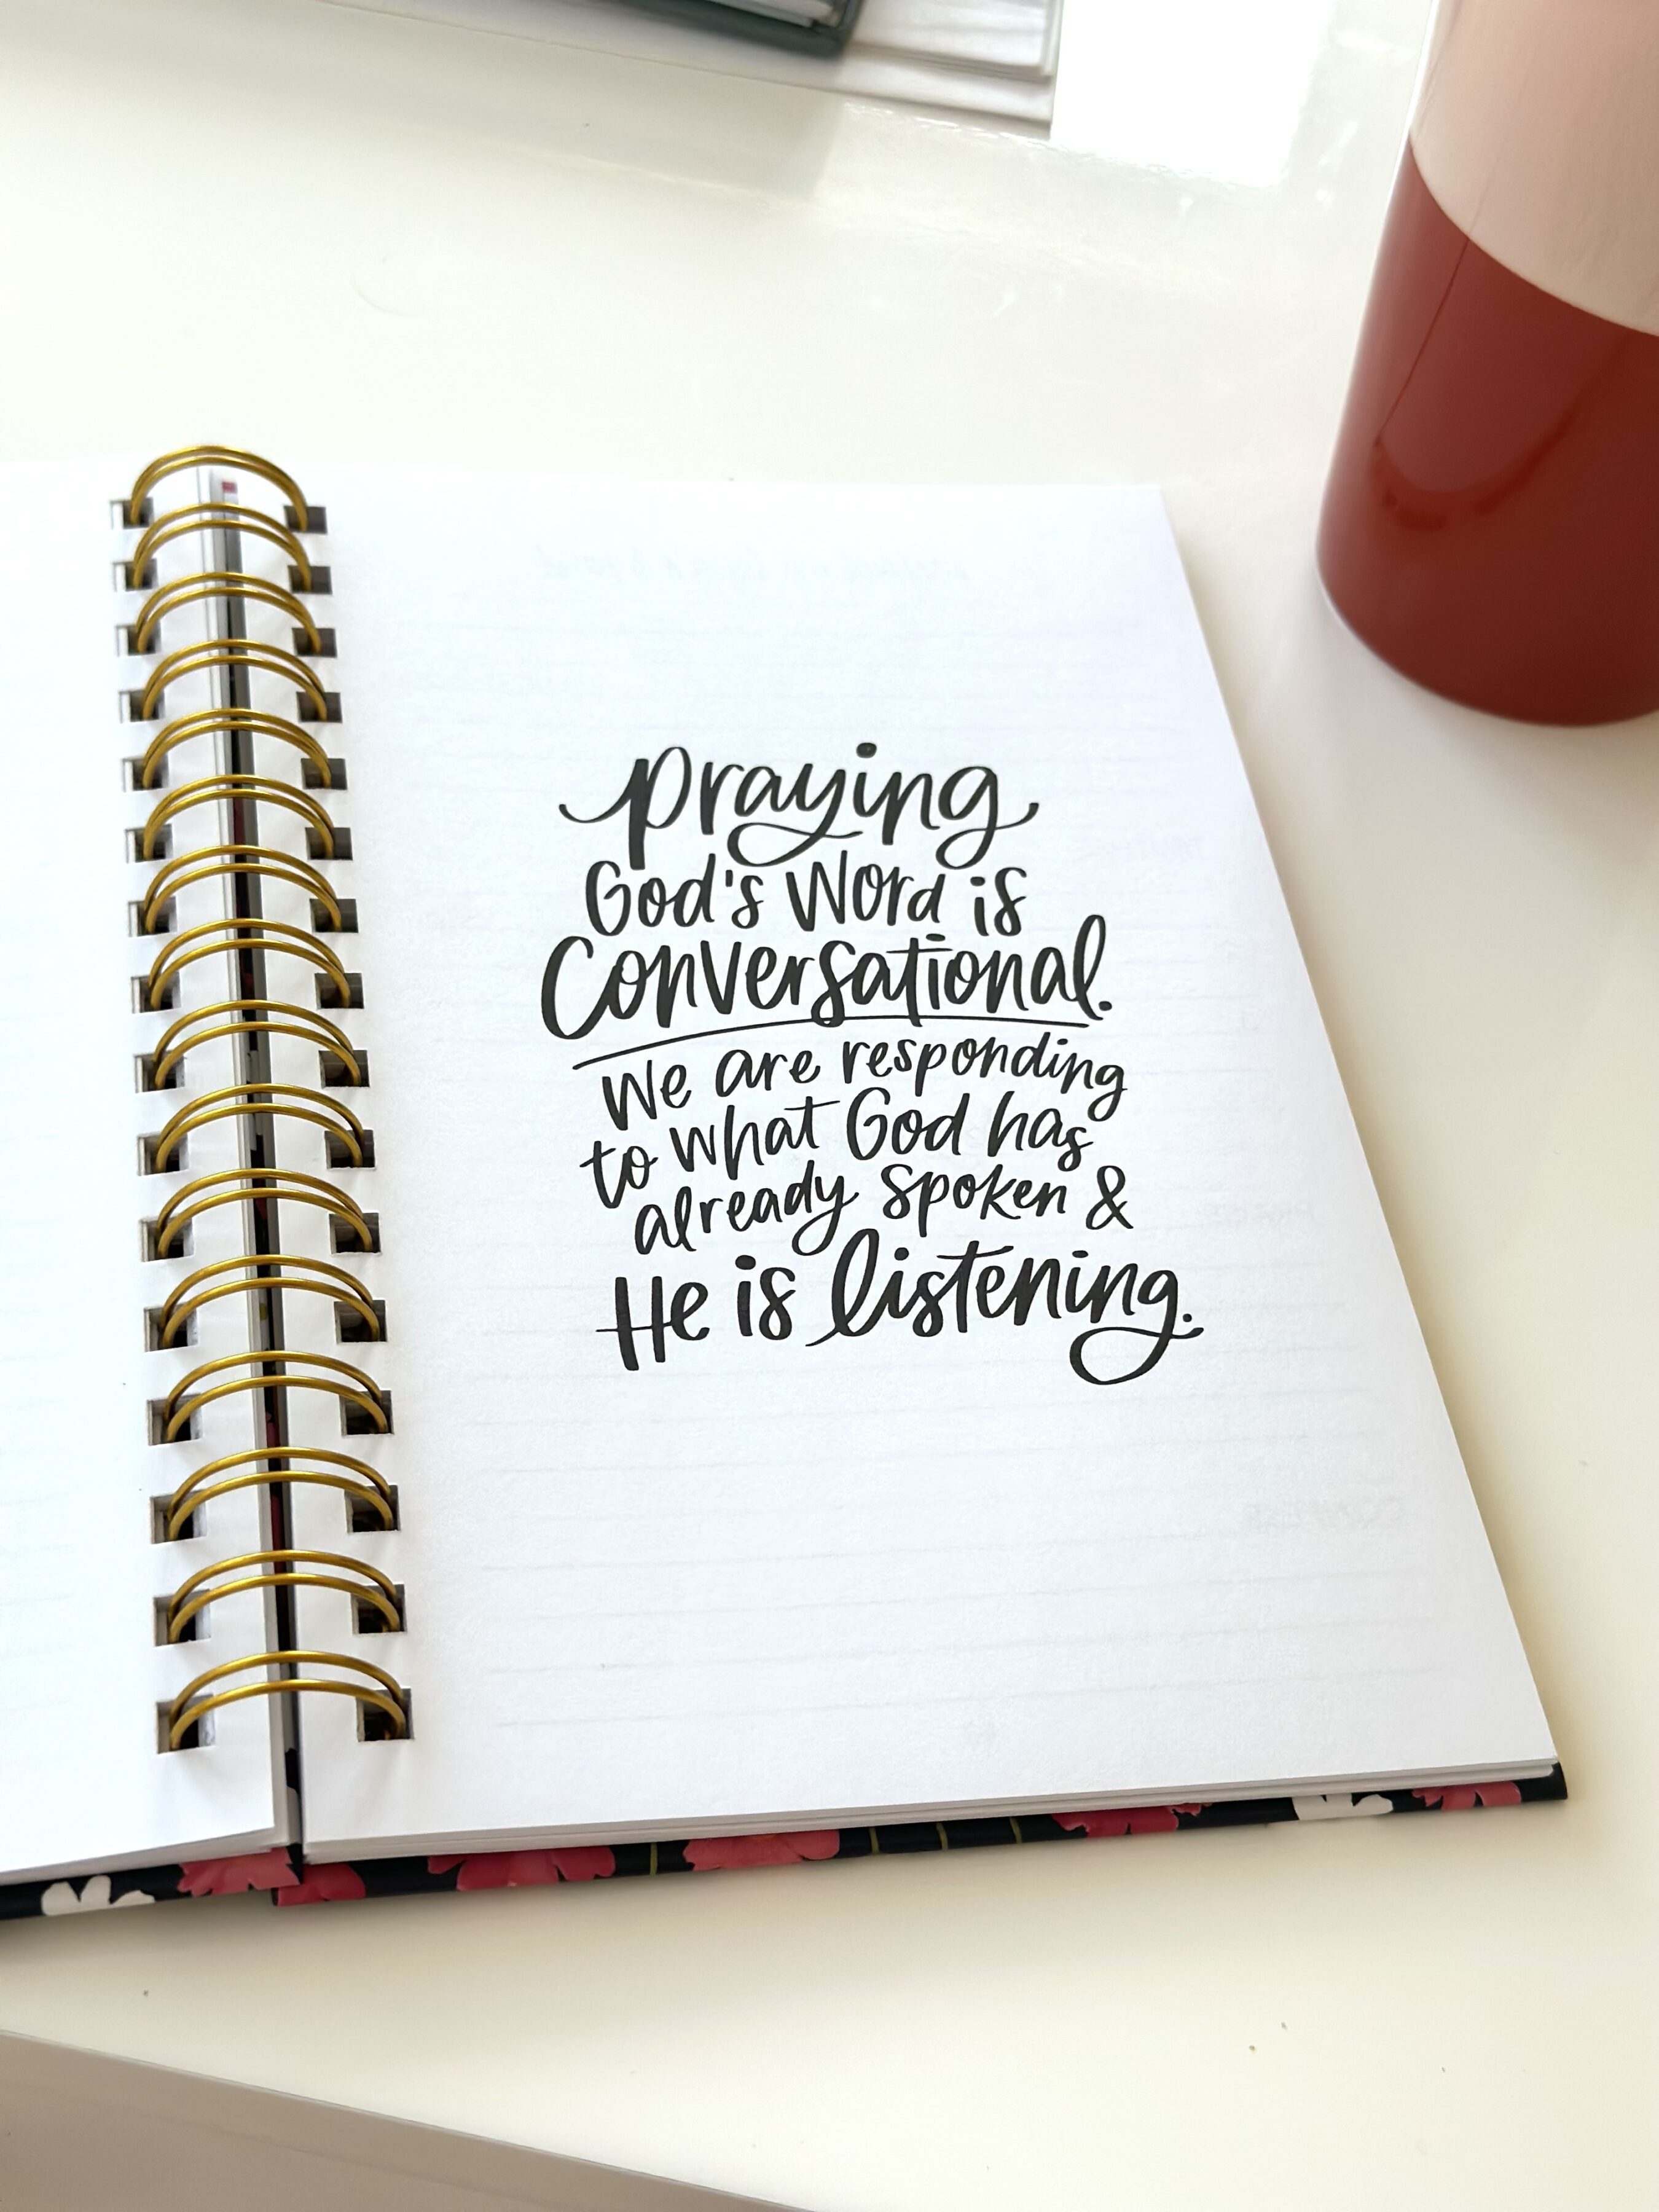 praying
God's Word is
Conversational.
We are responding
to what God has
already spoken &
He is listening.